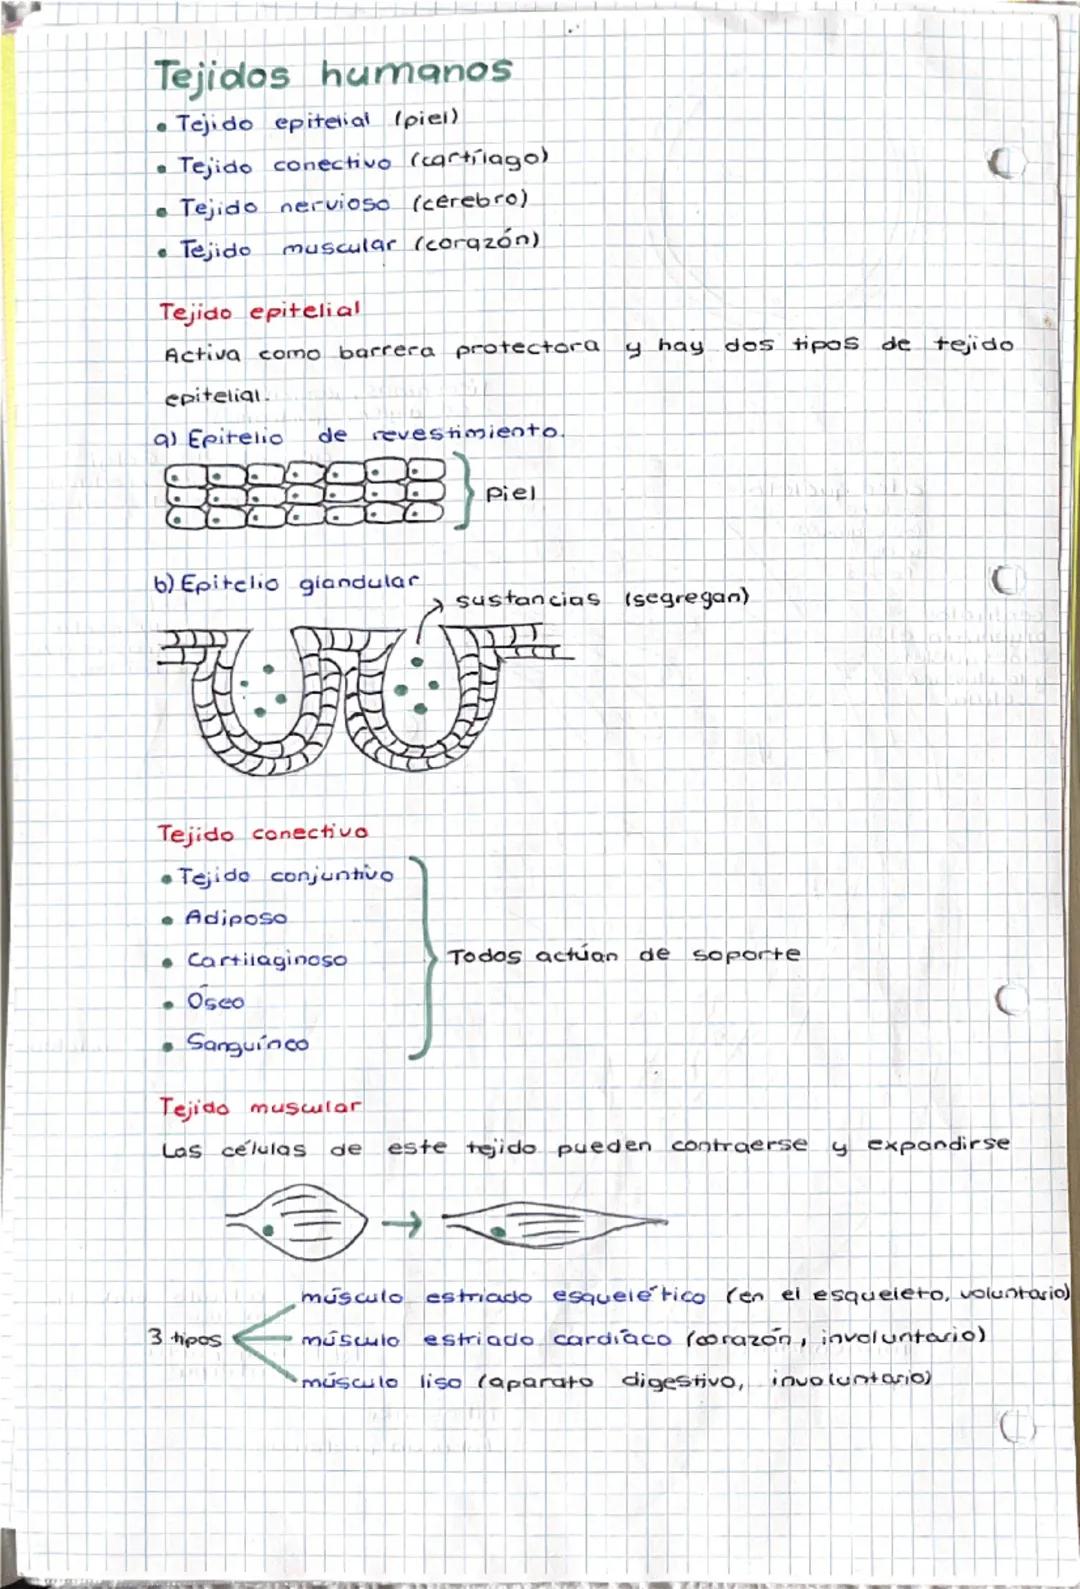 Tejidos humanos
• Tejido epitelial (piel)
• Tejido conectivo (cartílago)
• Tejido nervioso (cerebro)
• Tejido muscular (corazón)
Tejido epitelial
Activa como barrera protectora y hay dos tipos de tejido
epitelial.
a) Epitelio de revestimiento.
Piel
b) Epitelio glandular
sustancias (segregan)
Tejido conectivo
• Tejido conjuntivo
• Adiposo
• Cartilaginoso
• Óseo
• Sanguíneo
Todos actúan de soporte
Tejido muscular
Las células de este tejido pueden contraerse y expandirse
3 tipos
músculo estriado esquelético (en el esqueleto, voluntario)
músculo estriado cardíaco (corazón, involuntario)
músculo liso (aparato digestivo, involuntario)